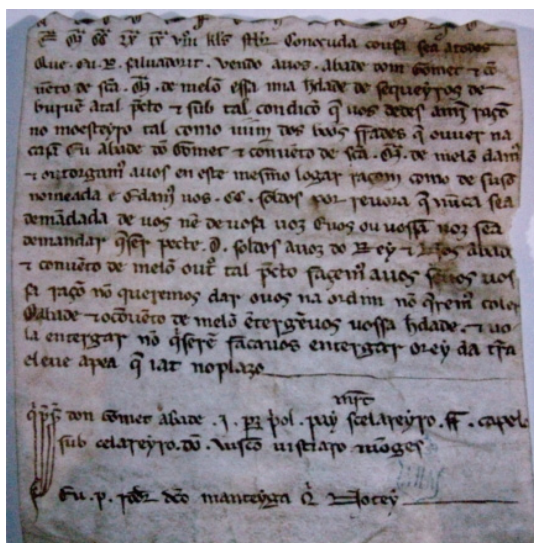 E. Mª. CCª. LXª. IXª. VIIIº. kls. Conoçuda cousa seia atodos
Que. Eu. P. saluadorit. vendo auos. abade dom Gomet & cõ
uẽto de scã. Mª. de melõ essa mia hdade de sequeyros de
buruẽ atal p̃eto & sub tal condiçõ q̃ uos dedes amĩ raçõ
no moesteyro tal como uũm dos boos frades q̃ ouuer na
casa Eu abade dõ Gomet & conuẽto de scã. Mª. de melõ damꝰ
& outorgamꝰ auos en este mesmo logar raçom como de suso
nomeada e damꝰ uos. CC. soldos por reuora q̃ nũca sea
demãdada de uos nẽ de uosa uoz Euos ou uossa uoz sea
demandar q̃ser pecte. D. soldos auoz do Rey & Nos abade
& conuẽto de melõ outº tal p̃eto fazemꝰ auos seuos uos
sa raçõ nõ queremos dar ouos na ordim nõ q̃remꝰ coler
Oabade & oconuẽto de melõ ẽtergẽuos uossa hdade. & uo
la entergar nõ q̃serẽ façauos entergar orey da tr̃a
eleue apea q̃ iaz noplazo
don Gomet abade. J. pz p̃ol. pay scelareyro. ff. capelo
sub celareyro. dõ. uisco uistiaro monges
Eu. p. dcõ manteyga Notey